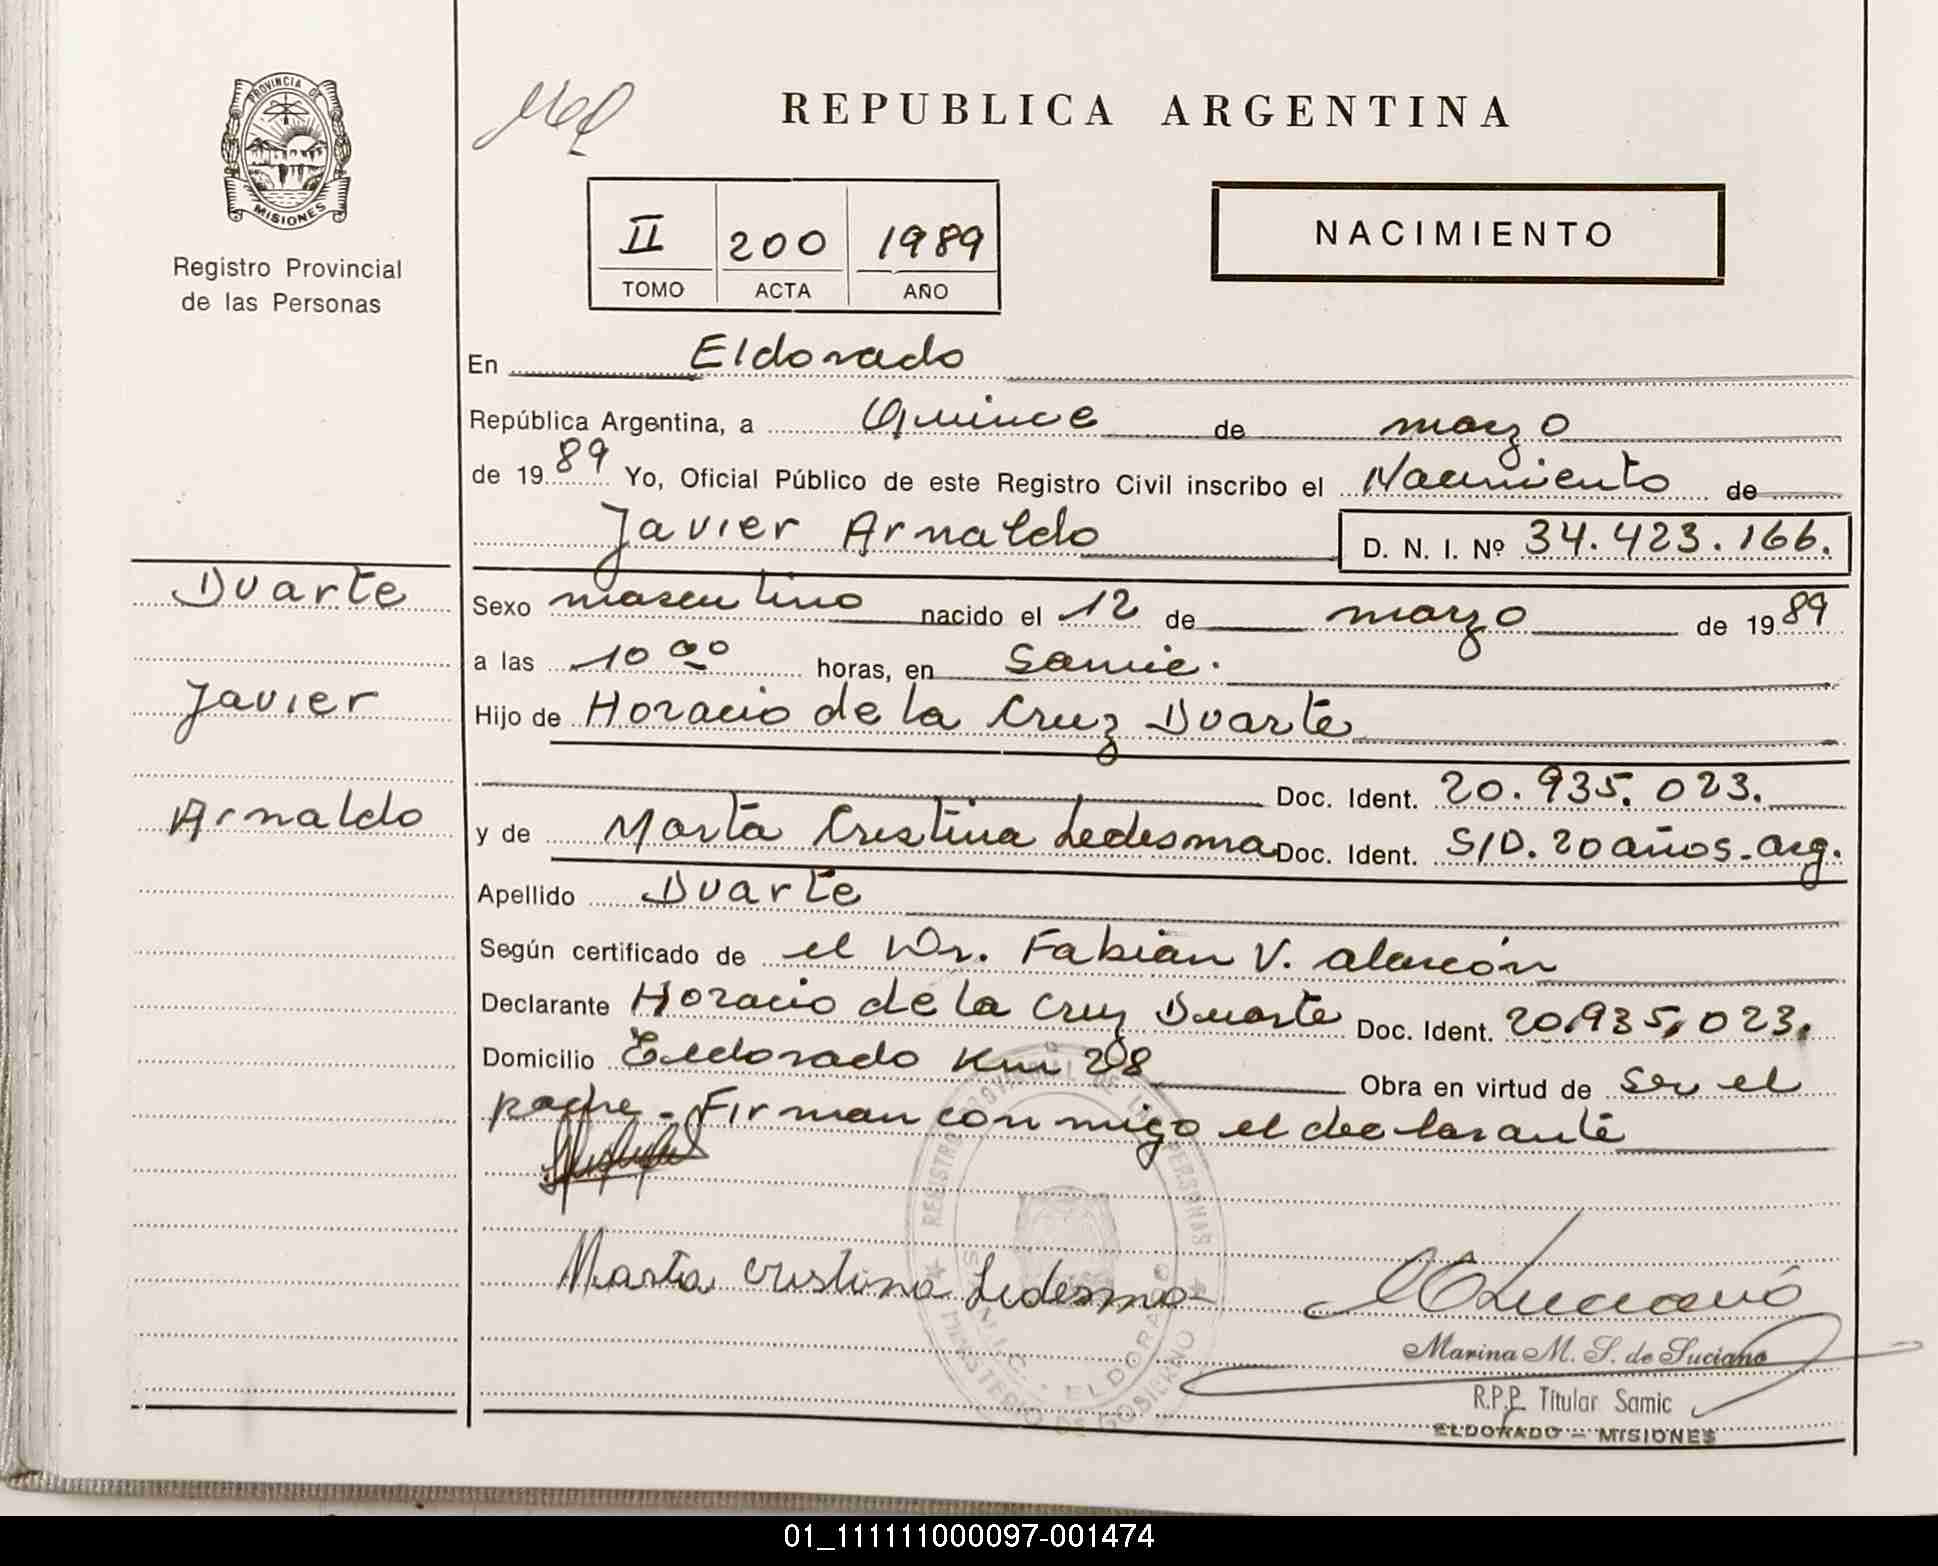 PROVINCIA DE
MISIONES
Registro Provincial
de las Personas
REPUBLICA ARGENTINA
II 200 1989
TOMO ACTA AÑO
NACIMIENTO
En Eldorado
República Argentina, a Quince de marzo
de 1989 Yo, Oficial Público de este Registro Civil inscribo el Nacimiento de
Javier Arnaldo D. N. I. Nº 34.423.166.
Duarte
Javier
Arnaldo
Sexo masculino nacido el 12 de marzo de 1989
a las 10 00 horas, en Samic.
Hijo de Horacio de la Cruz Duarte
Doc. Ident. 20.935.023.
y de Marta Cristina Ledesma Doc. Ident. S/D. 20 años. arg.
Apellido Duarte
Según certificado de el Dr. Fabián V. Alarcón
Declarante Horacio de la Cruz Duarte Doc. Ident. 20.935.023.
Domicilio Eldorado Km 28 Obra en virtud de ser el
padre. Firman conmigo el declarante
Marta Cristina Ledesma
REGISTRO PROVINCIAL DE LAS PERSONAS
MINISTERIO DE GOBIERNO
ELDORADO
Marina M. S. de Luciano
R.P.P. Titular Samic
ELDORADO - MISIONES
01_111111000097-001474